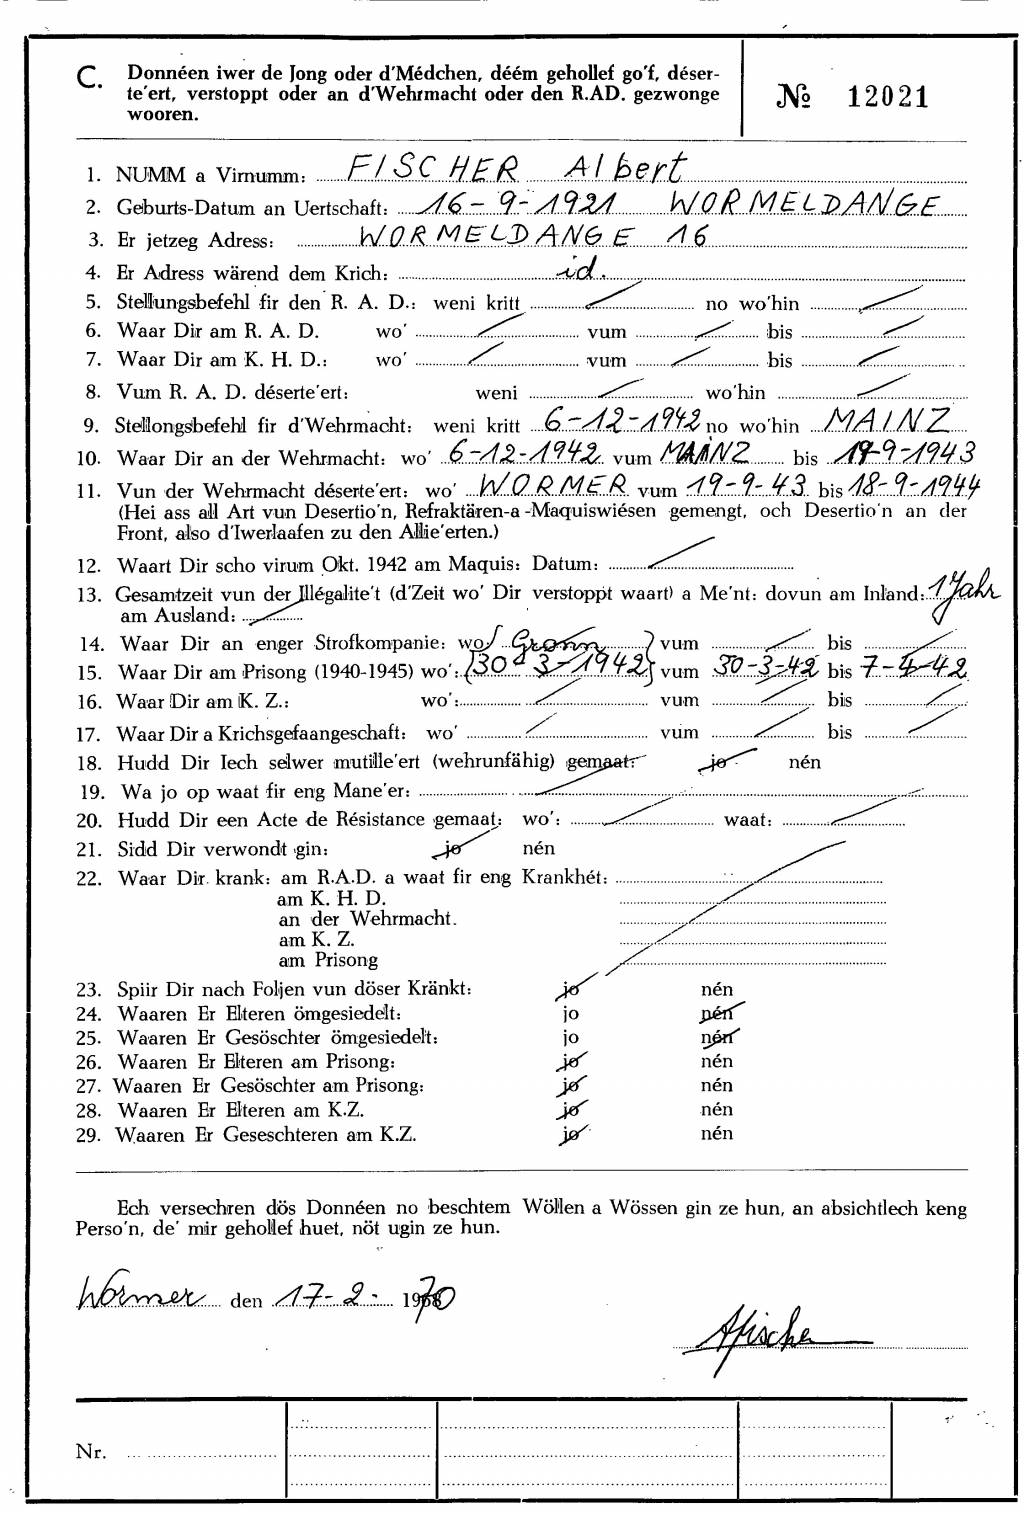 C. Donnéen iwer de Jong oder d'Médchen, déém gehollef go'f, déser-
te'ert, verstoppt oder an d'Wehrmacht oder den R.AD. gezwonge
wooren.
№ 12021
1. NUMM a Virnumm: FISCHER Albert
2. Geburts-Datum an Uertschaft: 16-9-1921 WORMELDANGE
3. Er jetzeg Adress: WORMELDANGE 16
4. Er Adress wärend dem Krich: id.
5. Stellungsbefehl fir den R. A. D.: weni kritt no wo'hin
6. Waar Dir am R. A. D. wo' vum bis
7. Waar Dir am K. H. D.: wo' vum bis
8. Vum R. A. D. déserte'ert: weni wo'hin
9. Stellongsbefehl fir d'Wehrmacht: weni kritt 6-12-1942 no wo'hin MAINZ
10. Waar Dir an der Wehrmacht: wo' 6-12-1942 vum MAINZ bis 19-9-1943
11. Vun der Wehrmacht déserte'ert: wo' WORMER vum 19-9-43 bis 18-9-1944
(Hei ass all Art vun Desertio'n, Refraktären-a-Maquiswiésen gemengt, och Desertio'n an der
Front, also d'Iwerlaafen zu den Allie'erten.)
12. Waart Dir scho virum Okt. 1942 am Maquis: Datum:
13. Gesamtzeit vun der Illégalite't (d'Zeit wo' Dir verstoppt waart) a Me'nt: dovun am Inland: 1 Jahr
am Ausland:
14. Waar Dir an enger Strofkompanie: wo' vum bis
15. Waar Dir am Prisong (1940-1945) wo': 30-3-1942 vum 30-3-42 bis 7-4-42
16. Waar Dir am K. Z.: wo': vum bis
17. Waar Dir a Krichsgefaangeschaft: wo' vum bis
18. Hudd Dir Iech selwer mutille'ert (wehrunfähig) gemaat: jo nén
19. Wa jo op waat fir eng Mane'er:
20. Hudd Dir een Acte de Résistance gemaat: wo': waat:
21. Sidd Dir verwondt gin: jo nén
22. Waar Dir krank: am R.A.D. a waat fir eng Krankhét:
am K. H. D.
an der Wehrmacht.
am K. Z.
am Prisong
23. Spiir Dir nach Foljen vun döser Kränkt: jo nén
24. Waaren Er Elteren ömgesiedelt: jo nén
25. Waaren Er Gesöschter ömgesiedelt: jo nén
26. Waaren Er Elteren am Prisong: jo nén
27. Waaren Er Gesöschter am Prisong: jo nén
28. Waaren Er Elteren am K.Z. jo nén
29. Waaren Er Geseschteren am K.Z. jo nén
Ech versechren dös Donnéen no beschtem Wöllen a Wössen gin ze hun, an absichtlech keng
Perso'n, de' mir gehollef huet, nöt ugin ze hun.
Wormer den 17-2- 1970
AFischer
Nr.